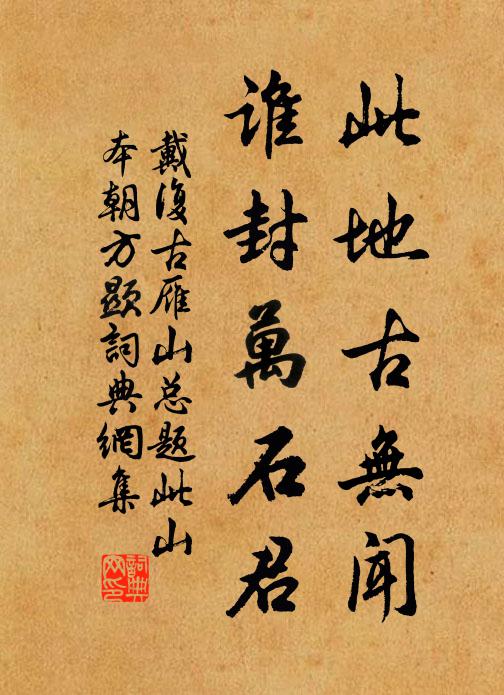 此地古無聞
谁封萬石君
戴復古雁山总题此山
本朝方顯詞典網集
詞典
网印